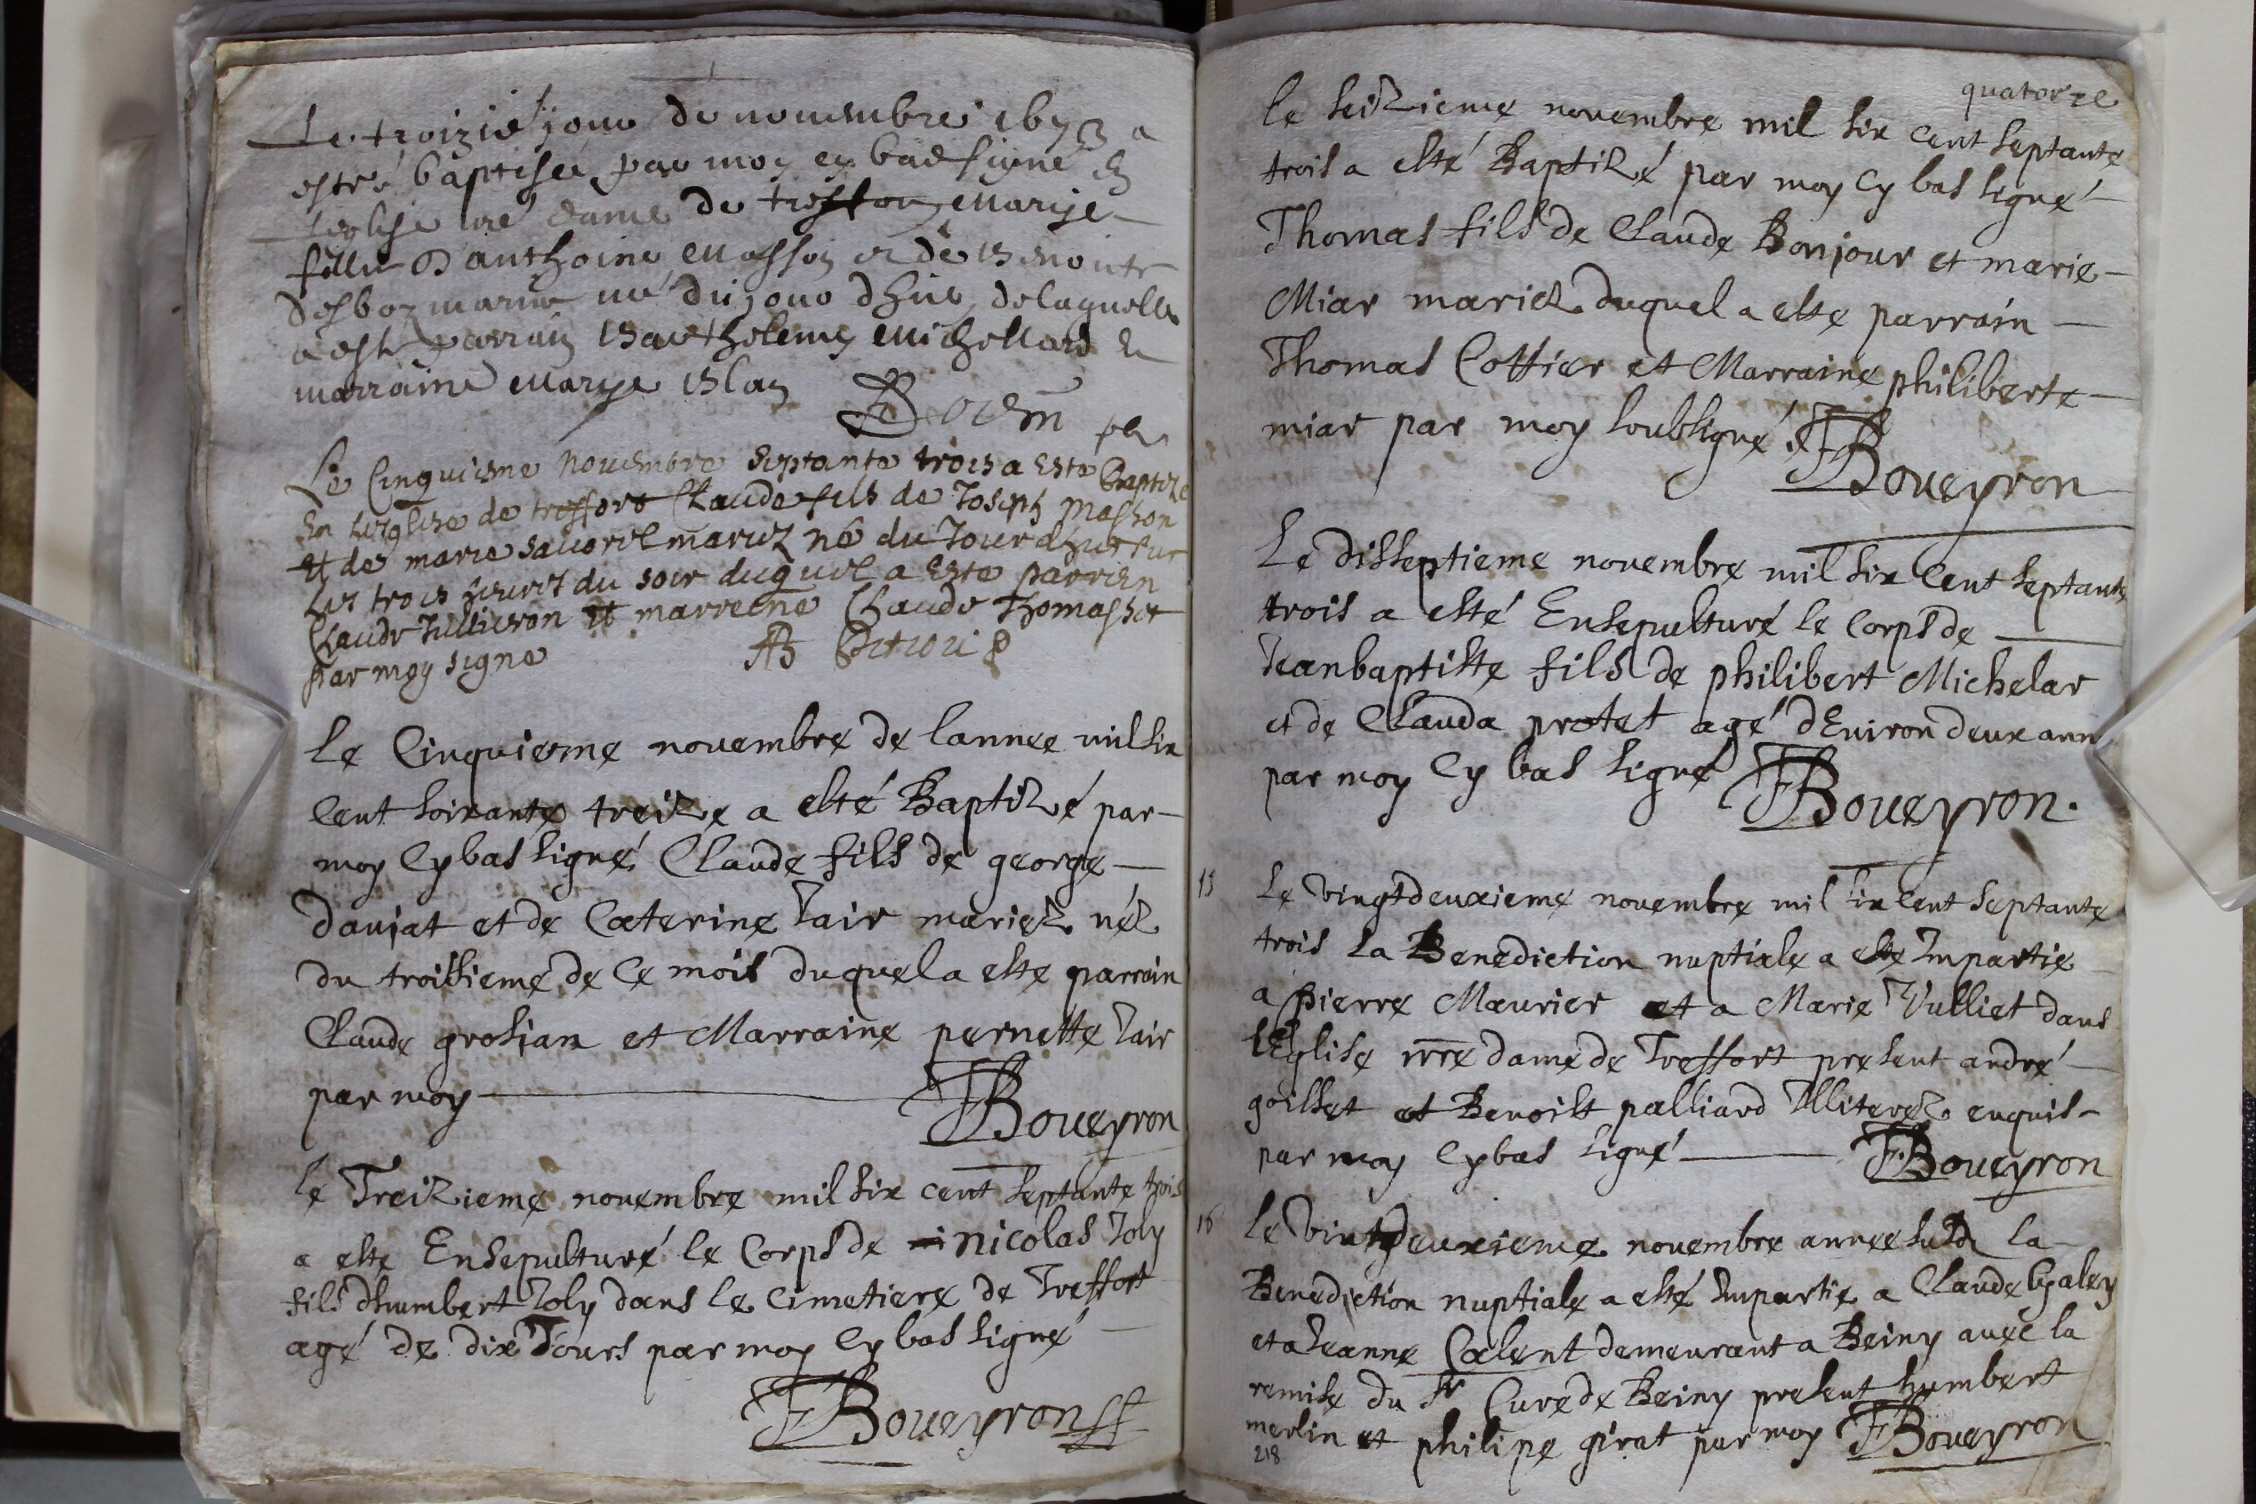 Le troizie jour de novembre 1673 a
estré baptisée par moy cy bas signé En
leglise nre dame de treffort Marye
fille d'anthoine Masson et de Benoite
Desboz marie né du jour d'huy de laquelle
a este parrain Barthelemy Michellard Et
marraine Marye
Le Cinquiesme Novembre septante trois a Este Baptize
En Leglize de treffort Claude fils de Joseph Masson
Et de marie savorel mariez né du Jour d'huy sur
Les trois heures du soir duquel a Este parrien
Claude Jullieron Et marreine Claude Thomasset
Par moy signe
le Cinquiesme novembre de lannee mil six
cent soixante treize a esté Baptizé par
moy Cy bas signé Claude fils de george
daujat et de Caterine Tair mariez néz
du troisieme de Ce mois duquel a este parrain
Claude grosjan et Marraine pernette Tair
par moy FBoueyron
le Treizieme novembre mil six cent septante trois
a este Ensepulturé le Corps de nicolas Joly
fils dhumbert Joly dans le Cimetiere de Treffort
agé de dix Jours par moy Cy bas signé
FBoueyron
quatorze
le seizieme novembre mil six cent septante
trois a esté Baptizé par moy Cy bas signé
Thomas fils de Claude Bonjour et marie
Miar mariez duquel a este parrain
Thomas Cottier et Marraine philiberte
miar par moy soubsigné
FBoueyron
Le disseptieme novembre mil six Cent septante
trois a esté Ensepulturé le Corps de
Jeanbaptiste fils de philibert Michelar
et de Clauda protet agé dEnviron deux ann
par moy Cy bas signé FBoueyron.
15 le vingtdeuxieme novembre mil six Cent septante
trois La Benediction nuptiale a este Impartie
a pierre Maurier et a Marie Vulliet dans
lEglise nre dame de Treffort present andré
goisset et Benoist palliard Illiterez enquis
par moy Cy bas signé FBoueyron
16 le vintdeuxieme novembre annee susd la
Benediction nuptiale a esté Impartie a Claude Chaley
et a Jeanne Calent demeurant a Beiny avec la
remise du sr Cure de Beiny present humbert
merlin et philipe girat par moy FBoueyron
218